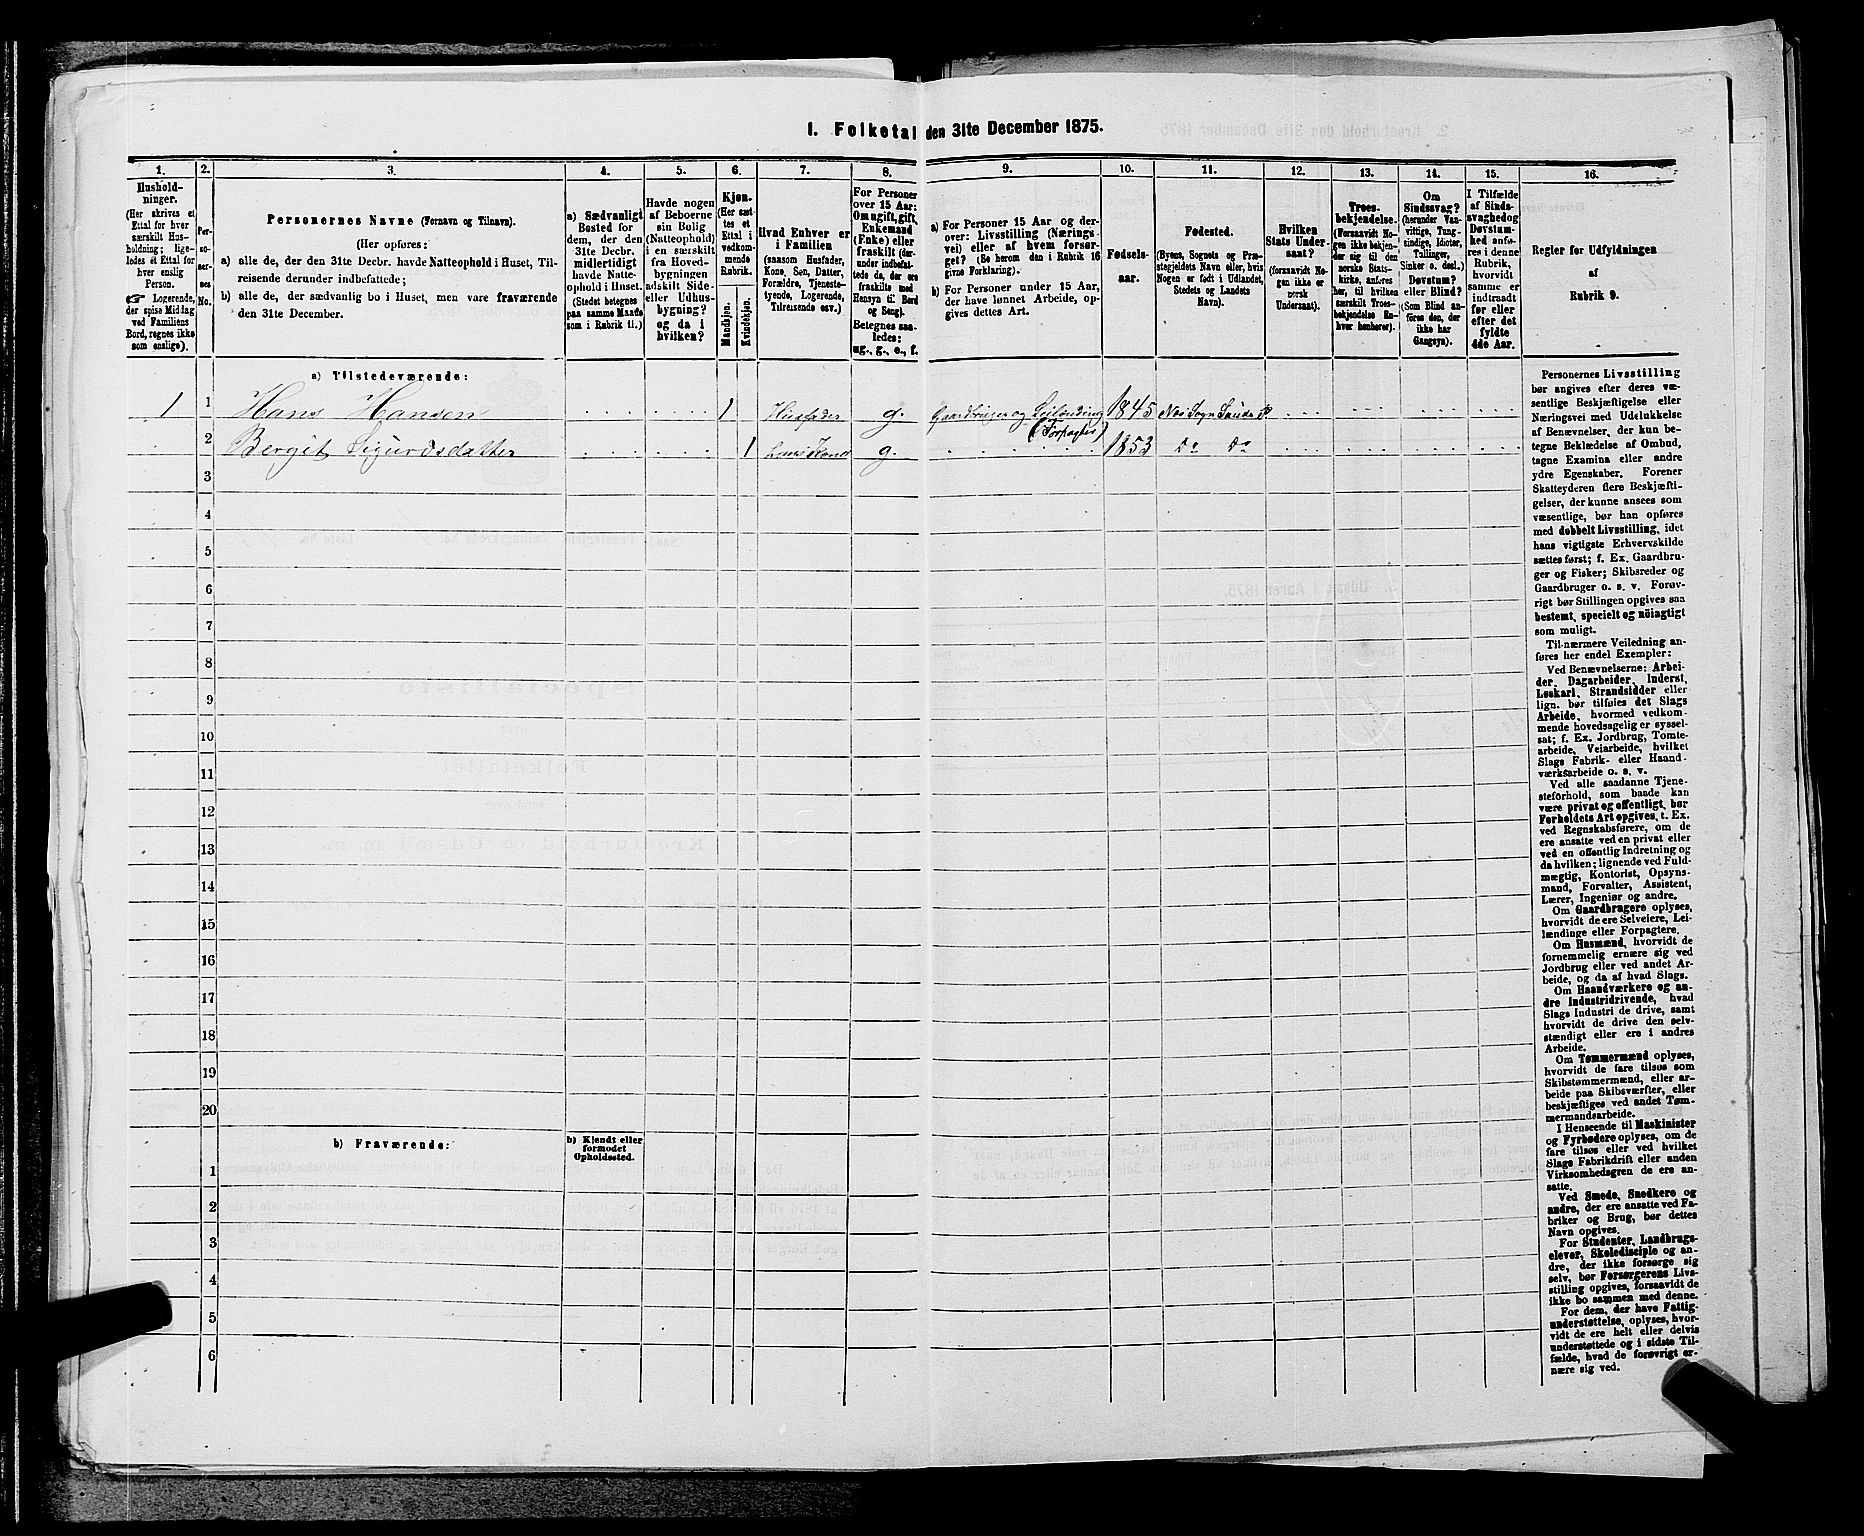 I. Folketal den 31te December 1875.
1.
2.
3.
4.
5.
6.
7.
8.
9.
10.
11.
12.
13.
14.
15.
16.
Hushold-
ninger.
(Her skrives et
Ettal for hver
særskilt Hus-
holdning; lige-
ledes et Ettal for
hver enslig
Person.
☞ Logerende,
der spise Middag
ved Familiens
Bord, regnes ikke
som enslige).
Per-
so-
ner-
nes
No.
Personernes Navne (Fornavn og Tilnavn).
(Her opføres:
a) alle de, der den 31te Decbr. havde Natteophold i Huset, Til-
reisende derunder indbefattede;
b) alle de, der sædvanlig bo i Huset, men vare fraværende
den 31te December.
a) Sædvanligt
Bosted for
dem, der den
31te Decbr.
midlertidigt
havde Natte-
ophold i Huset.
(Stedet betegnes
paa samme Maade
som i Rubrik 11.)
Havde nogen
af Beboerne
sin Bolig
(Natteophold)
i en særskilt
fra Hoved-
bygningen
adskilt Side-
eller Udhus-
bygning?
og da i
hvilken?
Kjøn.
(Her sæt-
tes et
Ettal i
vedkom-
mende
Rubrik.
Mandkjøn.
Kvindekjøn.
Hvad Enhver er
i Familien
(saasom Husfader,
Kone, Søn, Datter,
Forældre, Tjeneste-
tyende, Logerende,
Tilreisende osv.)
For Personer
over 15 Aar:
Om ugift, gift,
Enkemand
(Enke) eller
fraskilt (der-
under indbefat-
tede de, der ere
fraskilte med
Hensyn til Bord
og Seng).
Betegnes saa-
ledes:
ug., g., e., f.
a) For Personer 15 Aar og der-
over: Livsstilling (Nærings-
vei) eller af hvem forsør-
get? (Se herom den i Rubrik 16
givne Forklaring).
b) For Personer under 15 Aar,
der have lønnet Arbeide, op-
gives dettes Art.
Fødsels-
aar.
Fødested.
(Byens, Sognets og Præ-
stegjeldets Navn eller, hvis
Nogen er født i Udlandet,
Stedets og Landets
Navn).
Hvilken
Stats Under-
saat?
(forsaavidt No-
gen ikke er
norsk
Undersaat).
Troes-
bekjendelse.
(Forsaavidt No-
gen ikke bekjen-
der sig til den
norske Stats-
kirke, anføres
her, til hvilken
særskilt Troes-
bekjendelse En-
hver henhører).
Om
Sindssvag?
(herunder Van-
vittige, Tung-
sindige, Idioter,
Tullinger,
Sinker o. desl.)
Døvstum?
eller Blind?
(Som Blind an-
føres den, der
ikke har
Gangsyn).
I Tilfælde
af Sinds-
svaghed og
Døvstum-
hed anfø-
res i denne
Rubrik,
hvorvidt
samme er
indtraadt
før eller
efter det
fyldte
4de Aar.
Regler for Udfyldningen
af
Rubrik 9.
a) Tilstedeværende:
1 1 Hans Hansen 1 Husfader g. Gaardbruger og Leilending (Forpagter) 1845 Næs Sogn Saude P
2 Bergit Sigurdsdatter 1 hans Kone g. 1853 do do
3
4
5
6
7
8
9
10
11
12
13
14
15
16
17
18
19
20
b) Fraværende:
b) Kjendt eller
formodet
Opholdssted.
1
2
3
4
5
6
Personernes Livsstilling
bør angives efter deres væ-
sentlige Beskjæftigelse eller
Næringsvei med Udelukkelse
af Benævnelser, der kun be-
tegne Beklædelse af Ombud,
tagne Examina eller andre
ydre Egenskaber. Forener
Skatteyderen flere Beskjæfti-
gelser, der kunne ansees som
væsentlige, bør han opføres
med dobbelt Livsstilling, idet
hans vigtigste Erhvervskilde
sættes først; f. Ex. Gaardbru-
ger og Fisker; Skibsreder og
Gaardbruger o. s. v. Forøv-
rigt bør Stillingen opgives saa
bestemt, specielt og nöiagtigt
som muligt.
Til nærmere Veiledning an-
føres her endel Exempler:
Ved Benævnelserne: Arbei-
der, Dagarbeider, Inderst,
Løskarl, Strandsidder eller
lign. bør tilføies det Slags
Arbeide, hvormed vedkom-
mende hovedsagelig er syssel-
sat; f. Ex. Jordbrug, Tomte-
arbeide, Veiarbeide, hvilket
Slags Fabrik- eller Haand-
værksarbeide o. s. v.
Ved alle saadanne Tjene-
steforhold, som baade kan
være privat og offentligt, bør
Forholdets Art opgives, t. Ex.
ved Regnskabsførere, om de
ere ansatte ved en privat eller
ved en offentlig Indretning og
da hvilken; lignende ved Fuld-
mægtig, Kontorist, Opsyns-
mand, Forvalter, Assistent,
Lærer, Ingeniør og andre.
Om Gaardbrugere oplyses,
hvorvidt de ere Selveiere, Lei-
lændinge eller Forpagtere.
Om Husmænd, hvorvidt de
fornemmelig ernære sig ved
Jordbrug eller ved andet Ar-
beide, og da af hvad Slags.
Om Haandværkere og an-
dre Industridrivende, hvad
Slags Industri de drive, samt
hvorvidt de drive den selv-
stændigt eller ere i andres
Arbeide.
Om Tømmermænd oplyses,
hvorvidt de fare tilsøs som
Skibstømmermænd, eller ar-
beide paa Skibsværfter, eller
beskjæftiges ved andet Tøm-
mermandsarbeide.
I Henseende til Maskinister
og Fyrbødere oplyses, om de
fare tilsøs eller ved hvilket
Slags Fabrikdrift eller anden
Virksomhedsgren de ere an-
satte.
Ved Smede, Snedkere og
andre, der ere ansatte ved Fa-
briker og Brug, bør dettes
Navn opgives.
For Studenter, Landbrugs-
elever, Skoledisciple og an-
dre, der ikke forsørge sig
selv, bør Forsørgerens Livs-
stilling opgives, forsaavidt de
ikke bo sammen med denne.
For dem, der have Fattig-
understøttelse, oplyses, hvor-
vidt de ere helt eller delvis
understøttede og i sidste Til-
fælde, hvad de forøvrigt er-
nære sig ved.